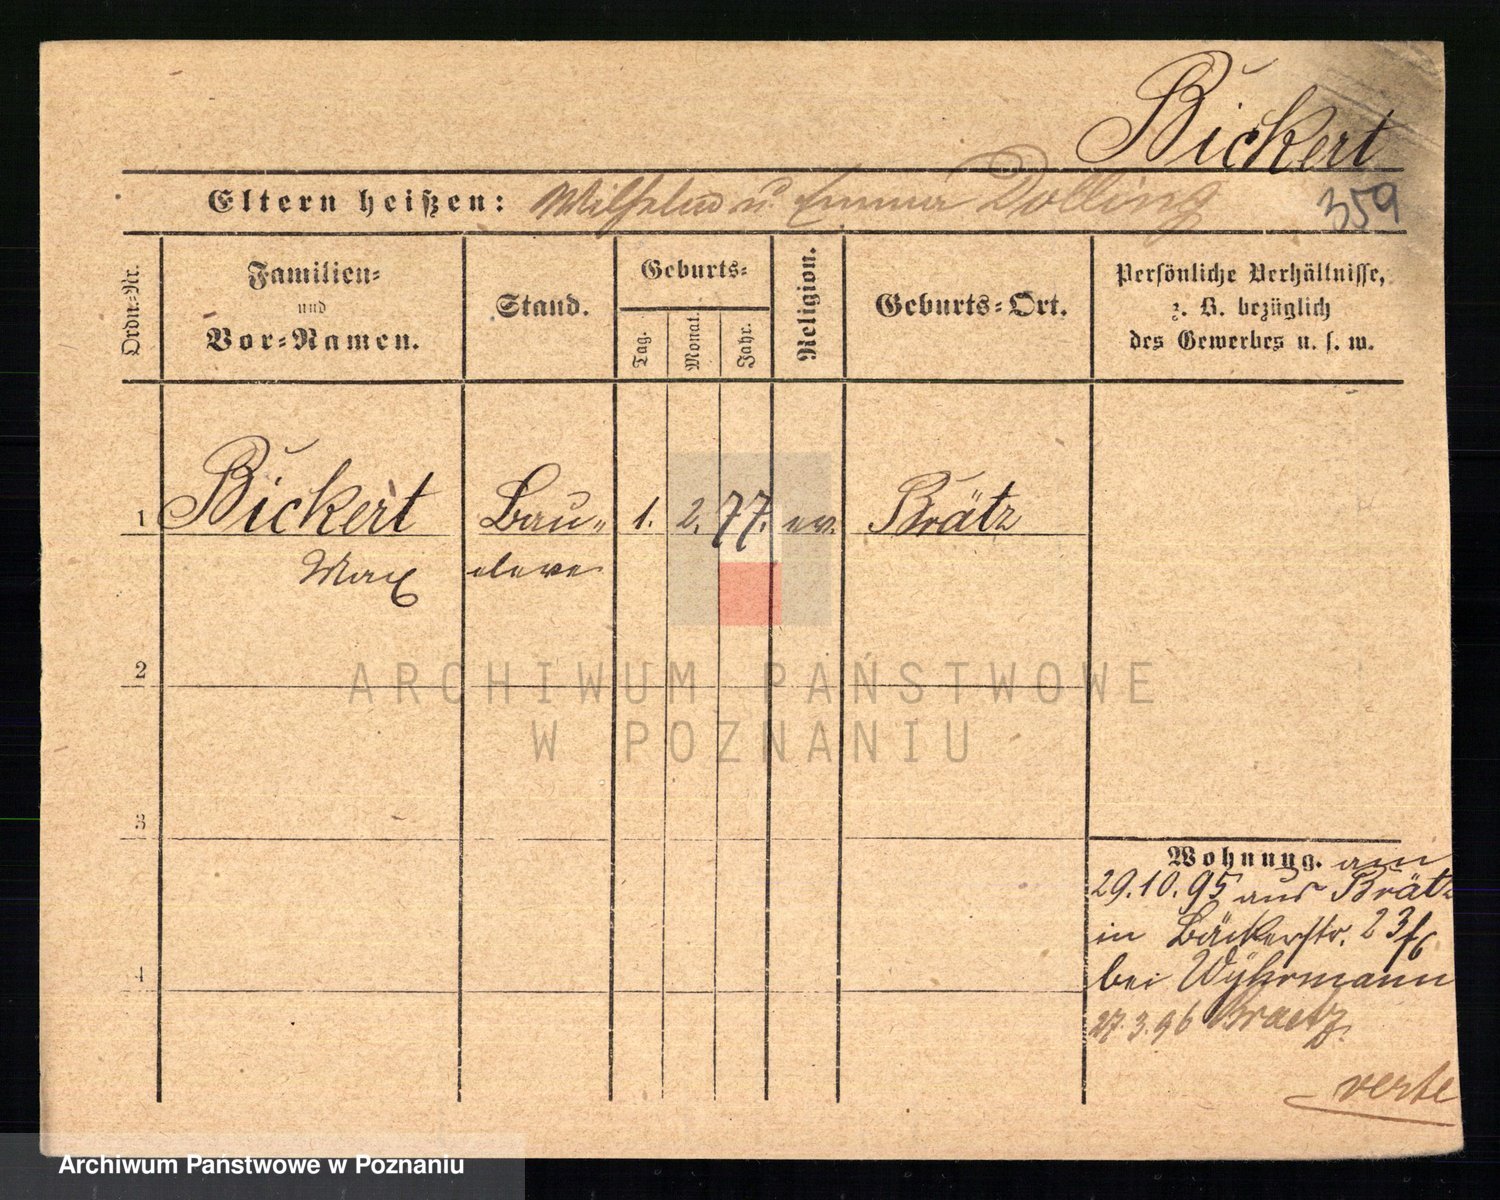 Bickert
Eltern heißen: Wilhelm u. Emma Dolling
359
Ordn.-Nr.
Familien-
und
Vor-Namen.
Stand.
Geburts-
Tag.
Monat.
Jahr.
Religion.
Geburts-Ort.
Persönliche Verhältnisse,
z. B. bezüglich
des Gewerbes u. s. w.
1 Bickert Bau- 1. 2. 77. ev. Brätz
Max eleve
2
3
4
Wohnung. am
29.10.95 aus Brätz
in Bäckerstr. 23
bei
27.3.96 Braetz.
verte
ARCHIWUM PAŃSTWOWE
W POZNANIU
Archiwum Państwowe w Poznaniu